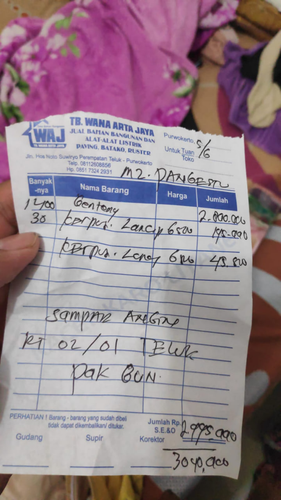 TB. WANA ARTA JAYA
JUAL BAHAN BANGUNAN DAN
ALAT-ALAT LISTRIK
PAVING, BATAKO, RUSTER
WAJ
Jln. Hos Noto Suwiryo Perempatan Teluk - Purwokerto
Purwokerto, 5/6
Untuk Tuan
Toko
Banyak-nya Nama Barang Harga Jumlah
1400 Genteng 2.800.000
30 Kerpus Lancip 6500 195.000
Kerpus Lancip 45.000
RT 02/01 TELUK
pak
PERHATIAN ! Barang - barang yang sudah dibeli
tidak dapat dikembalikan/ ditukar.
Jumlah Rp. 2995.000
S.E.&O
Gudang Supir Korektor
3040,000